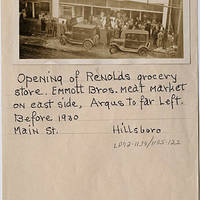 Opening of Renolds grocery
store. Emmott Bros. meat market
on east side, Argus to far Left.
Before 1930
Main St. Hillsboro